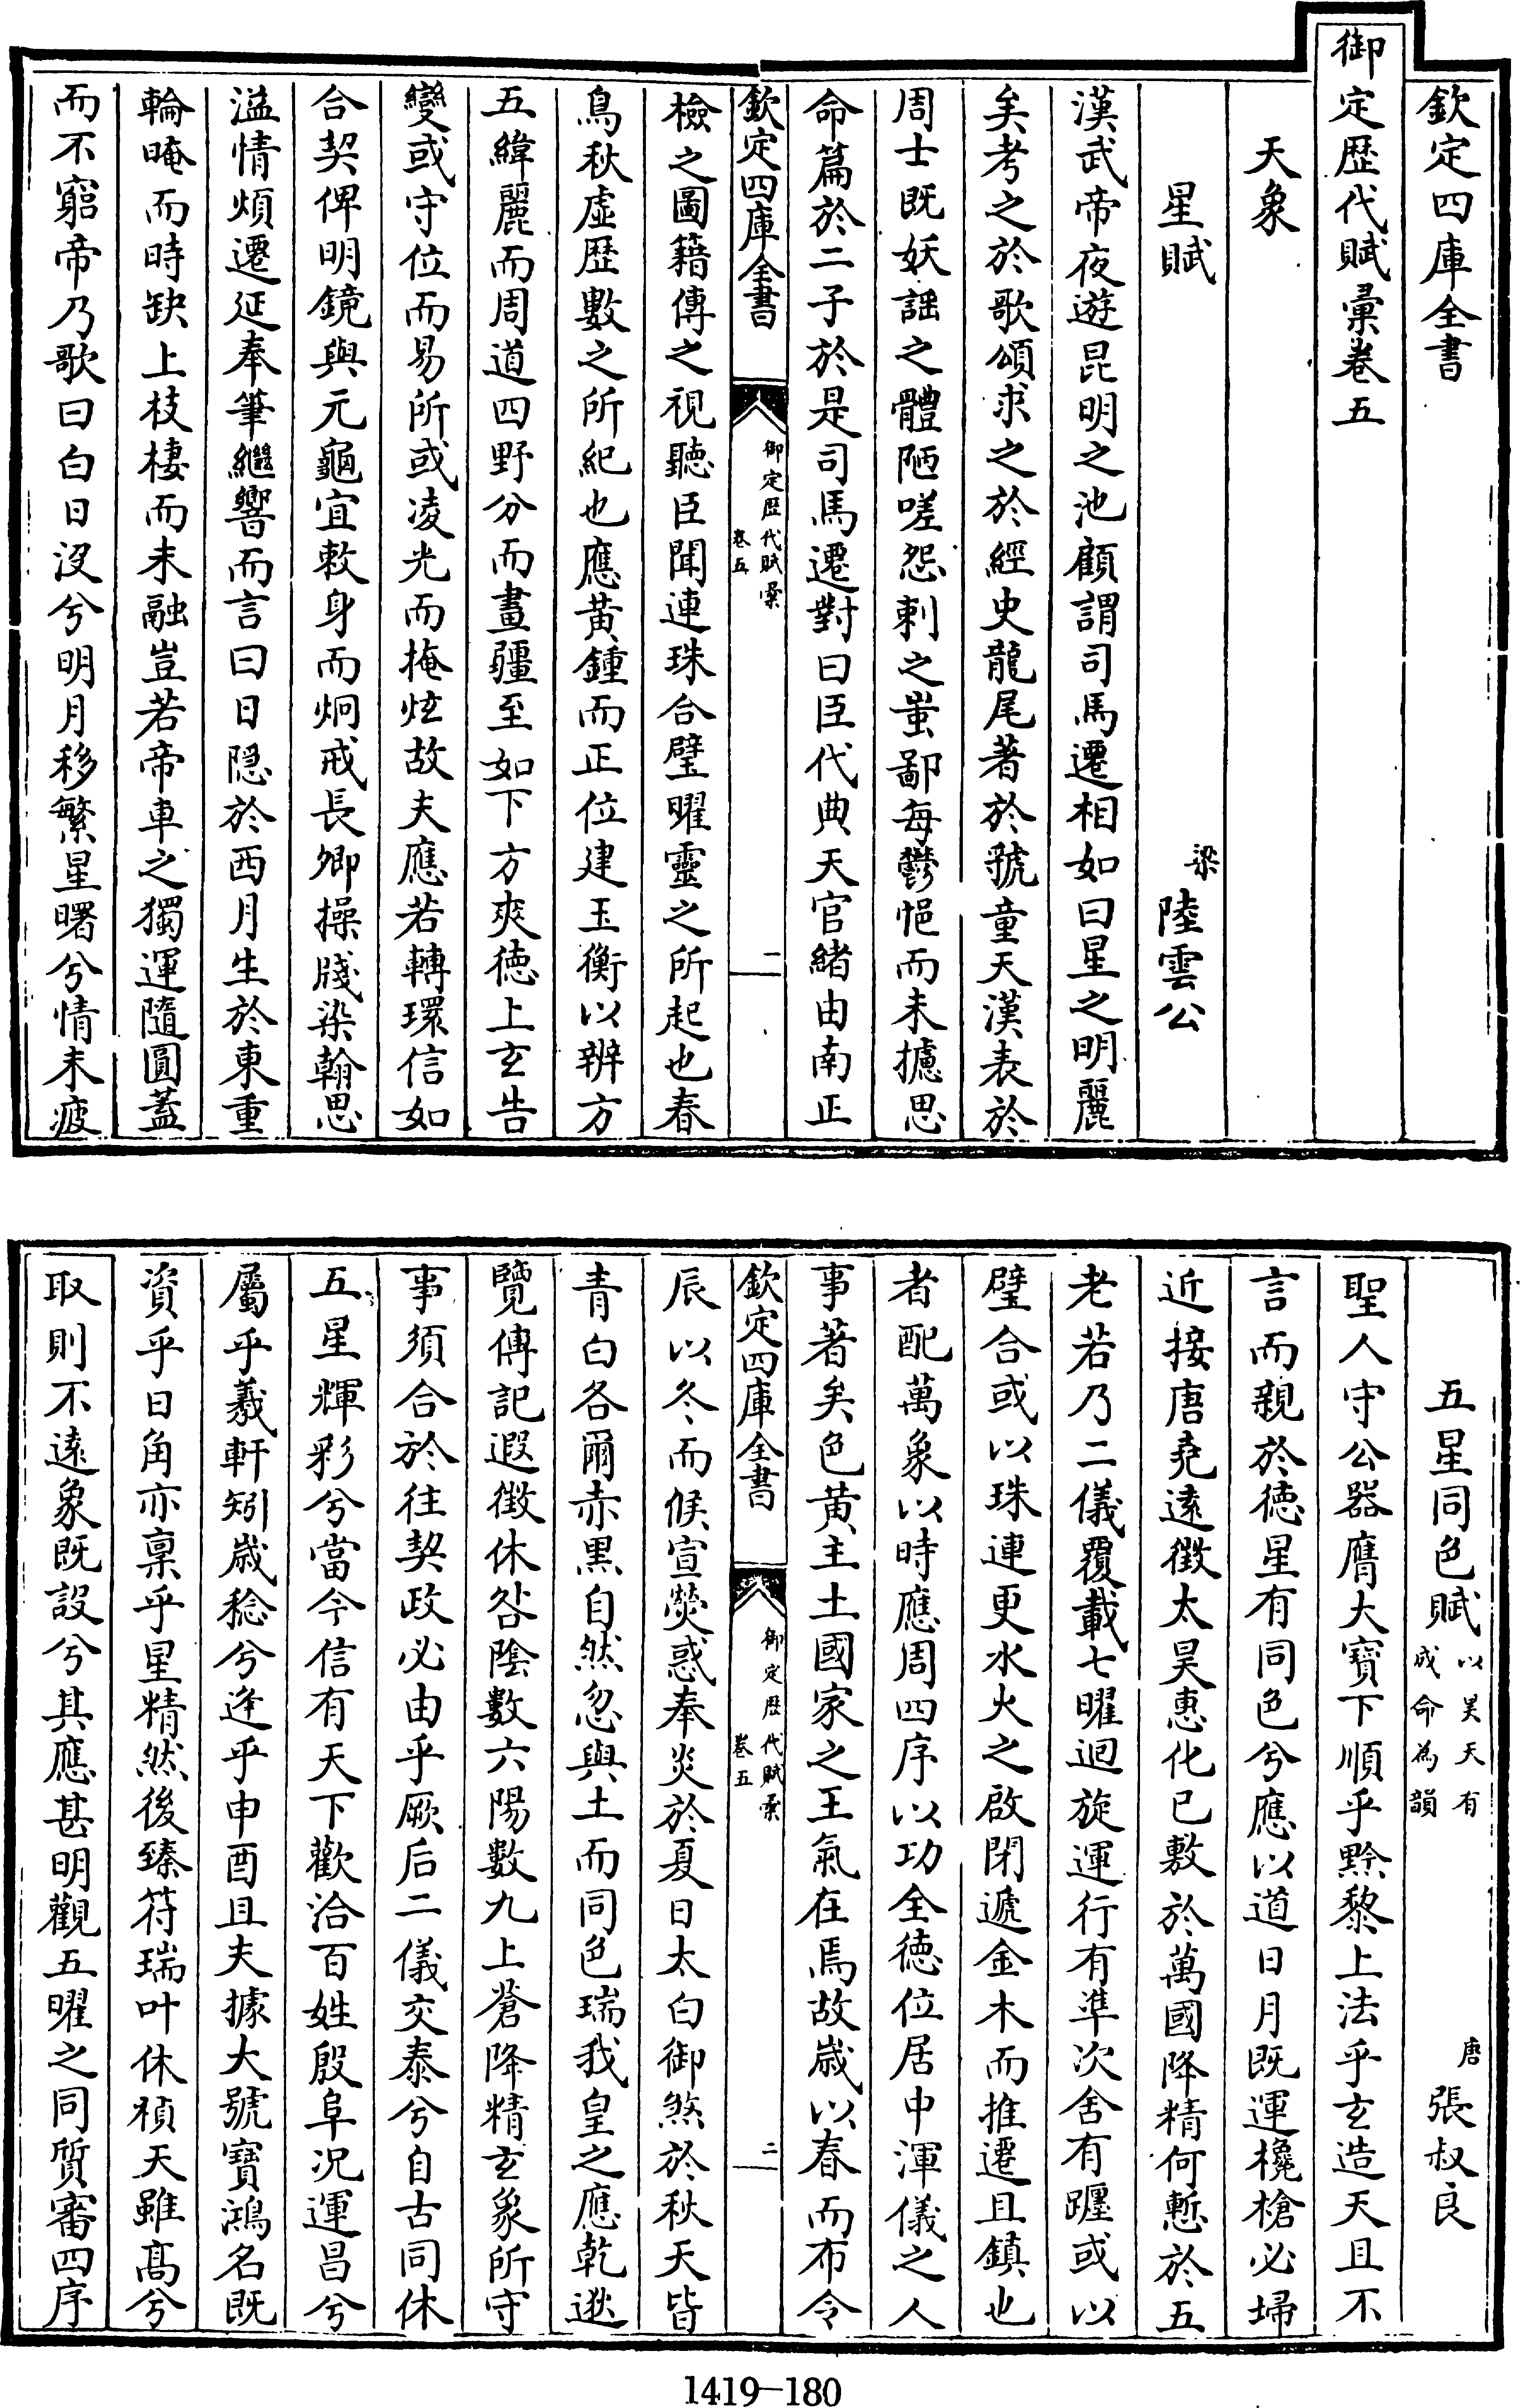 欽定四庫全書
御定歴代賦彙卷五
天象
星賦
梁陸雲公
漢武帝夜遊昆明之池顧謂司馬遷相如曰星之明麗
矣考之於歌頌求之於經史龍尾著於虢童天漢表於
周士既妖謡之體陋嗟怨刺之蚩鄙每鬱悒而未攄思
命篇於二子於是司馬遷對曰臣代典天官緒由南正
欽定四庫全書
御定歴代賦彙
卷五
一
檢之圖籍傳之視聽臣聞連珠合璧曜靈之所起也春
鳥秋虛歴數之所紀也應黃鍾而正位建玉衡以辨方
五緯麗而周道四野分而畫疆至如下方爽德上玄告
變或守位而易所或凌光而掩炫故夫應若轉環信如
合契俾明鏡與元龜宜敕身而炯戒長卿操牋染翰思
溢情煩遷延奉筆繼響而言曰日隠於西月生於東重
輪晻而時缺上枝棲而未融豈若帝車之獨運隨圓蓋
而不窮帝乃歌曰白日沒兮明月移繁星曙兮情未疲
五星同色賦
以昊天有
成命為韻
唐張叔良
聖人守公器膺大寶下順乎黔黎上法乎玄造天且不
言而親於徳星有同色兮應以道日月既運欃槍必埽
近接唐堯遠徴太昊惠化已敷於萬國降精何慙於五
老若乃二儀覆載七曜迴旋運行有準次舍有躔或以
璧合或以珠連更水火之啟閉遞金木而推遷且鎮也
者配萬象以時應周四序以功全徳位居中渾儀之人
事著矣色黄主土國家之王氣在焉故嵗以春而布令
欽定四庫全書
御定歴代賦彙
卷五
二
辰以冬而候宣熒惑奉炎於夏日太白御煞於秋天皆
青白各爾赤黒自然忽與土而同色瑞我皇之應乾逖
覽傳記遐徴休咎隂數六陽數九上蒼降精玄象所守
事須合於往契政必由乎厥后二儀交泰兮自古同休
五星輝彩兮當今信有天下歡洽百姓殷阜況運昌兮
屬乎羲軒矧嵗稔兮逢乎申酉且夫據大號寶鴻名既
資乎日角亦稟乎星精然後臻符瑞叶休禎天雖髙兮
取則不逺象既設兮其應甚明觀五曜之同質審四序
1419—180